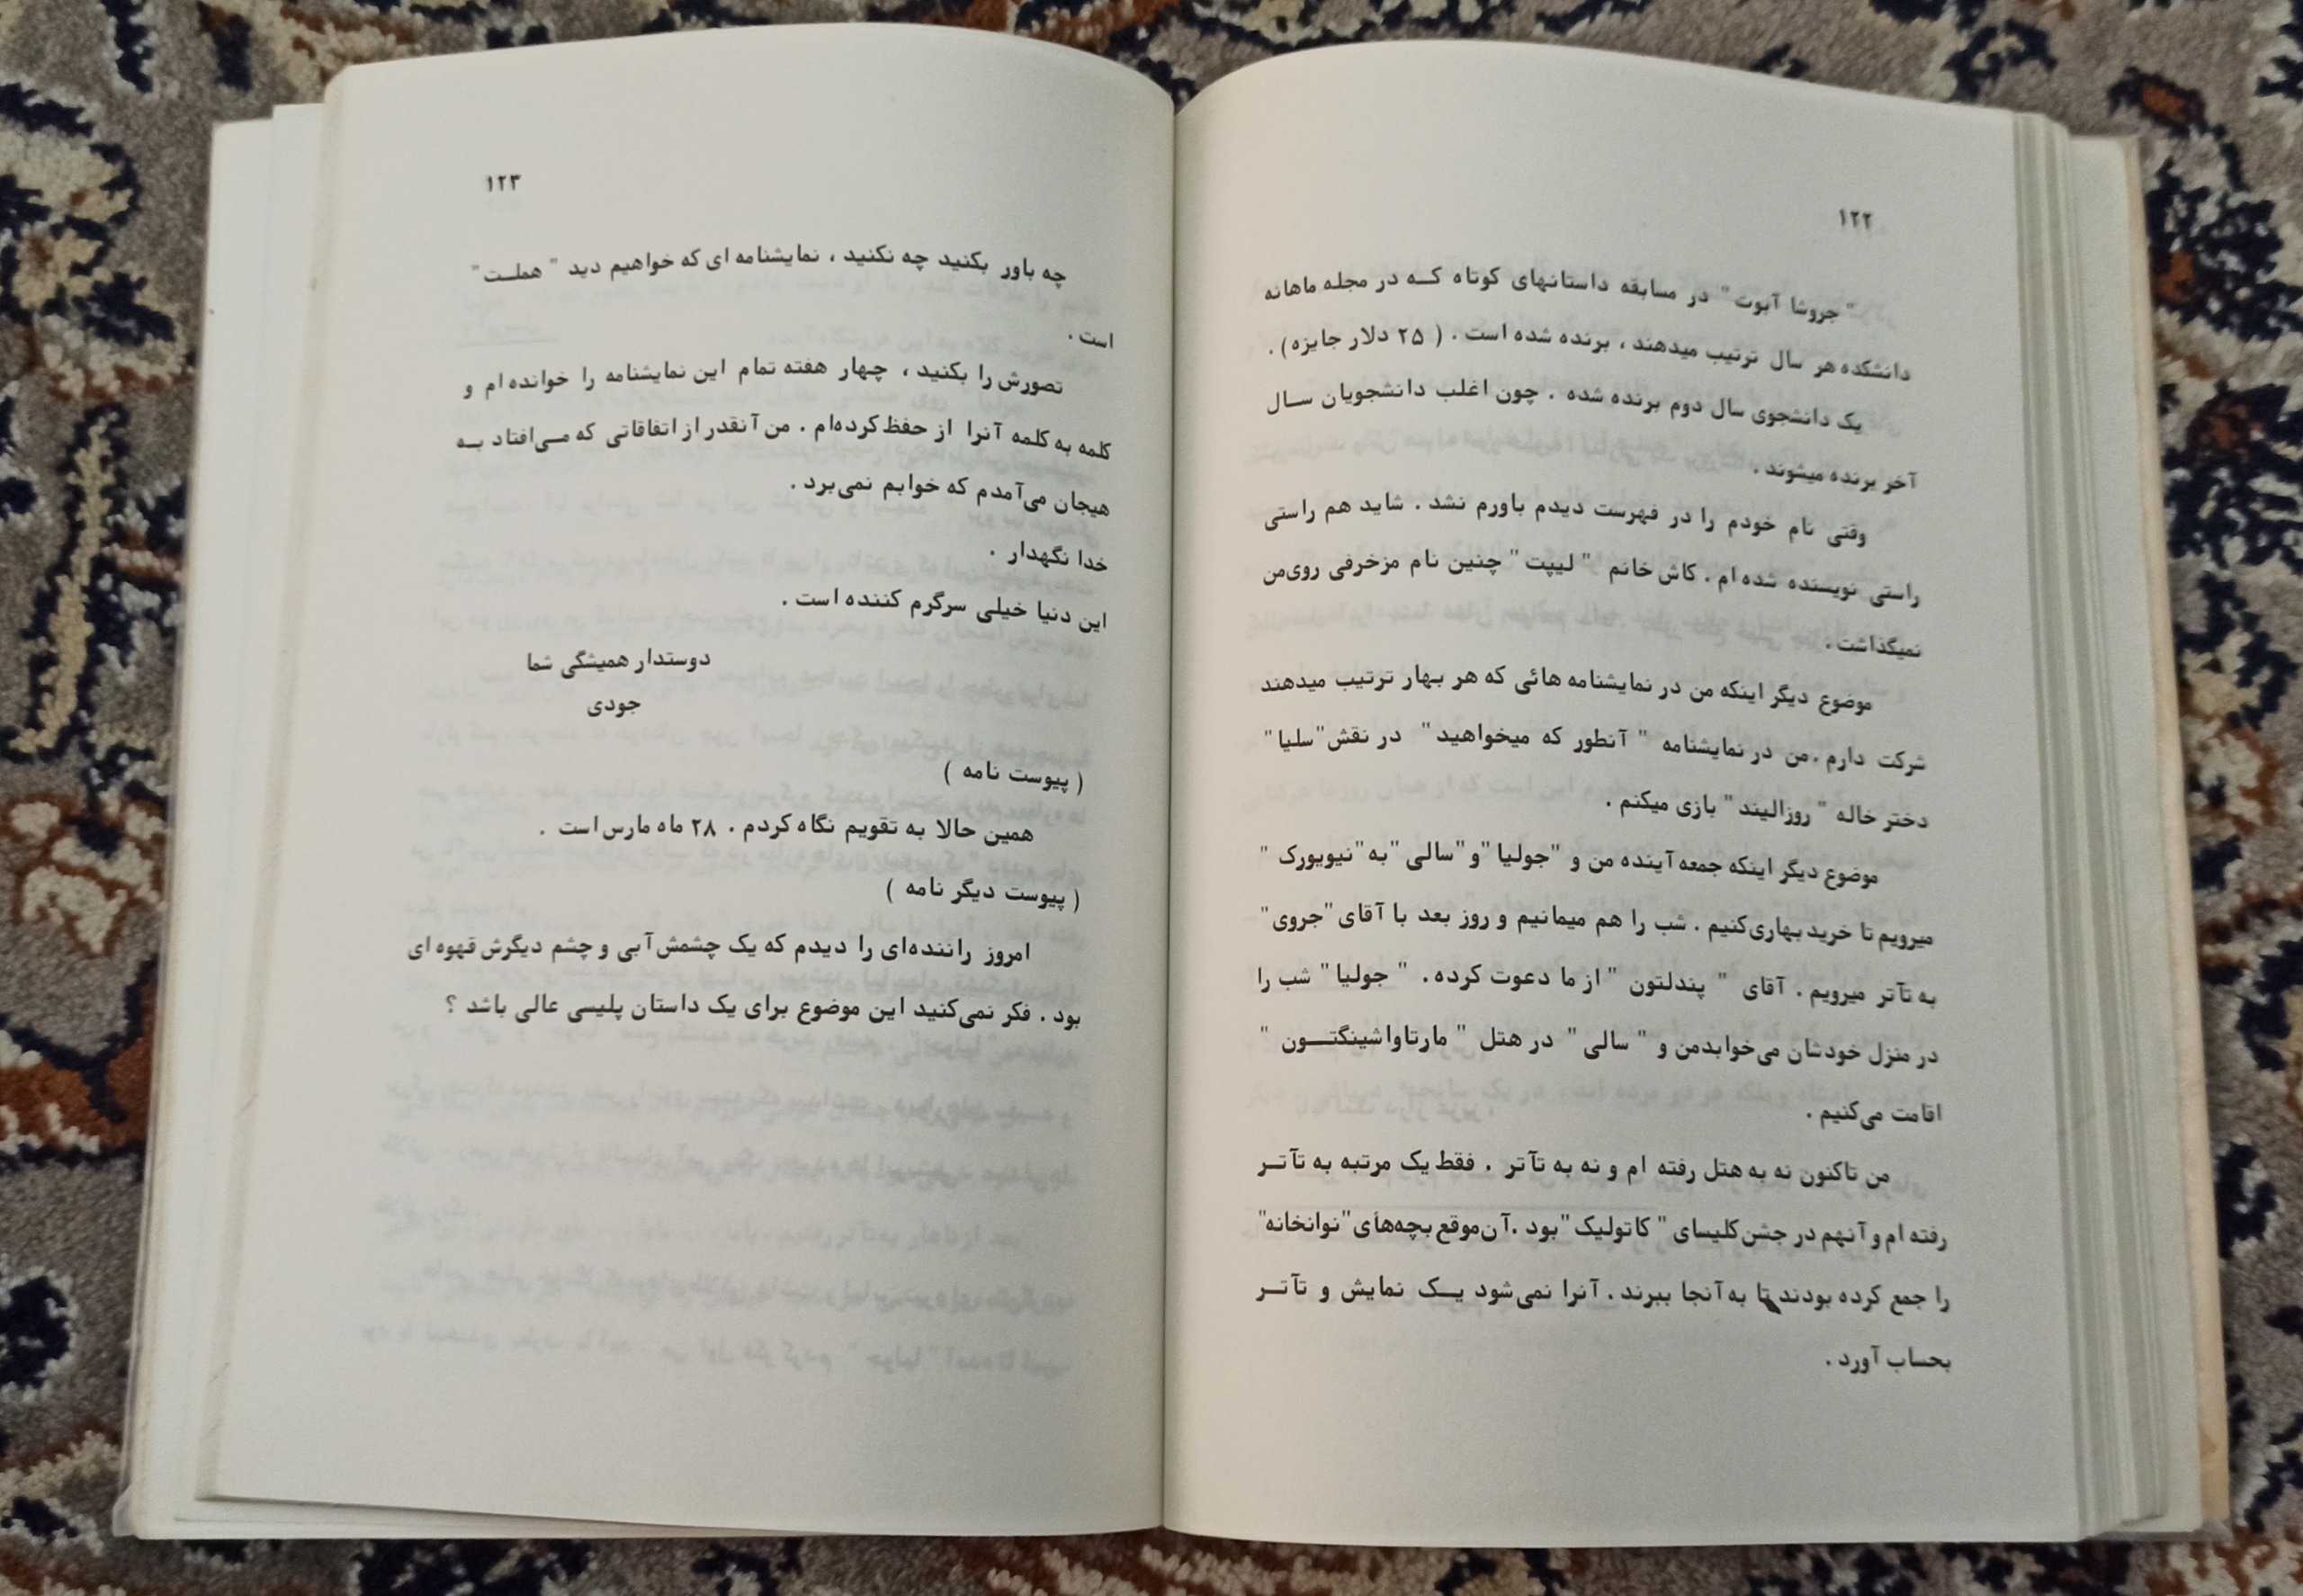 ۱۲۲
"جروشا آبوت" در مسابقه داستانهای کوتاه کــه در مجله ماهانه
دانشکده هر سال ترتیب میدهند ، برنده شده است . ( ۲۵ دلار جایزه) .
یک دانشجوی سال دوم برنده شده . چون اغلب دانشجویان ســال
آخر برنده میشوند .
وقتی نام خودم را در فهرست دیدم باورم نشد . شاید هم راستی
راستی نویسنده شده ام . کاش خانم " لیپت " چنین نام مزخرفی روی‌من
نمیگذاشت .
موضوع دیگر اینکه من در نمایشنامه هائی که هر بهار ترتیب میدهند
شرکت دارم . من در نمایشنامه " آنطور که میخواهید " در نقش "سلیا"
دختر خاله " روزالیند " بازی میکنم .
موضوع دیگر اینکه جمعه آینده من و "جولیا " و "سالی " به "نیویورک "
میرویم تا خرید بهاری‌کنیم . شب را هم میمانیم و روز بعد با آقای "جروی"
به تآتر میرویم . آقای " پندلتون " از ما دعوت کرده . " جولیا " شب را
در منزل خودشان می‌خوابدمن و " سالی " در هتل " مارتاواشینگتـــون "
اقامت می‌کنیم .
من تاکنون نه به هتل رفته ام و نه به تآتر . فقط یک مرتبه به تآتــر
رفته ام و آنهم در جشن کلیسای " کاتولیک " بود . آن‌موقع بچه‌های "نوانخانه"
را جمع کرده بودند تا به آنجا ببرند . آنرا نمی‌شود یــک نمایش و تآتــر
بحساب آورد .
۱۲۳
چه باور بکنید چه نکنید ، نمایشنامه ای که خواهیم دید " هملــت"
است .
تصورش را بکنید ، چهار هفته تمام این نمایشنامه را خوانده ام و
کلمه به کلمه آنرا از حفظ کرده‌ام . من آنقدر از اتفاقاتی که مــی‌افتاد بــه
هیجان می‌آمدم که خوابم نمی‌برد .
خدا نگهدار .
این دنیا خیلی سرگرم کننده است .
دوستدار همیشگی شما
جودی
( پیوست نامه )
همین حالا به تقویم نگاه کردم . ۲۸ ماه مارس است .
( پیوست دیگر نامه )
امروز راننده‌ای را دیدم که یک چشمش آبی و چشم دیگرش قهوه ای
بود . فکر نمی‌کنید این موضوع برای یک داستان پلیسی عالی باشد ؟